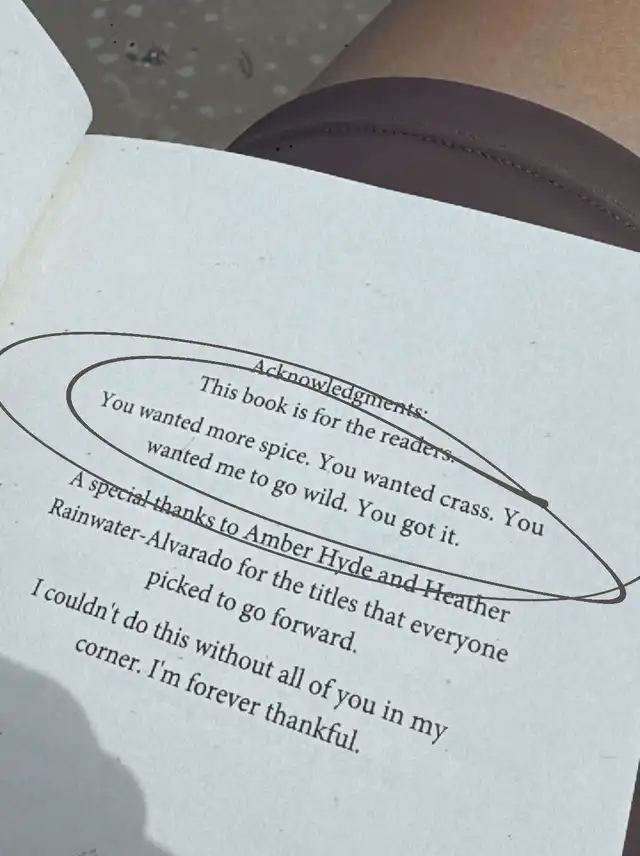 Acknowledgments:
This book is for the readers.
You wanted more spice. You wanted crass. You
wanted me to go wild. You got it.
A special thanks to Amber Hyde and Heather
Rainwater-Alvarado for the titles that everyone
picked to go forward.
I couldn't do this without all of you in my
corner. I'm forever thankful.